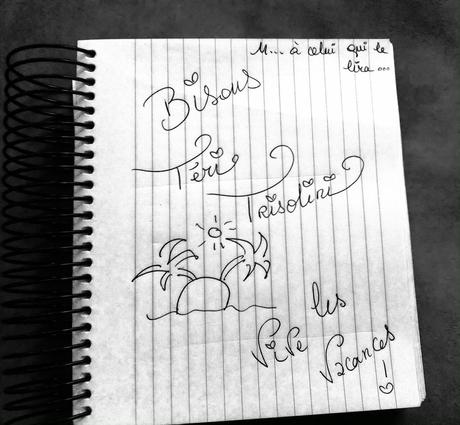 M... à celui qui le
lira...
Bisous
Téri
Trisolini
Vive les
Vacances !